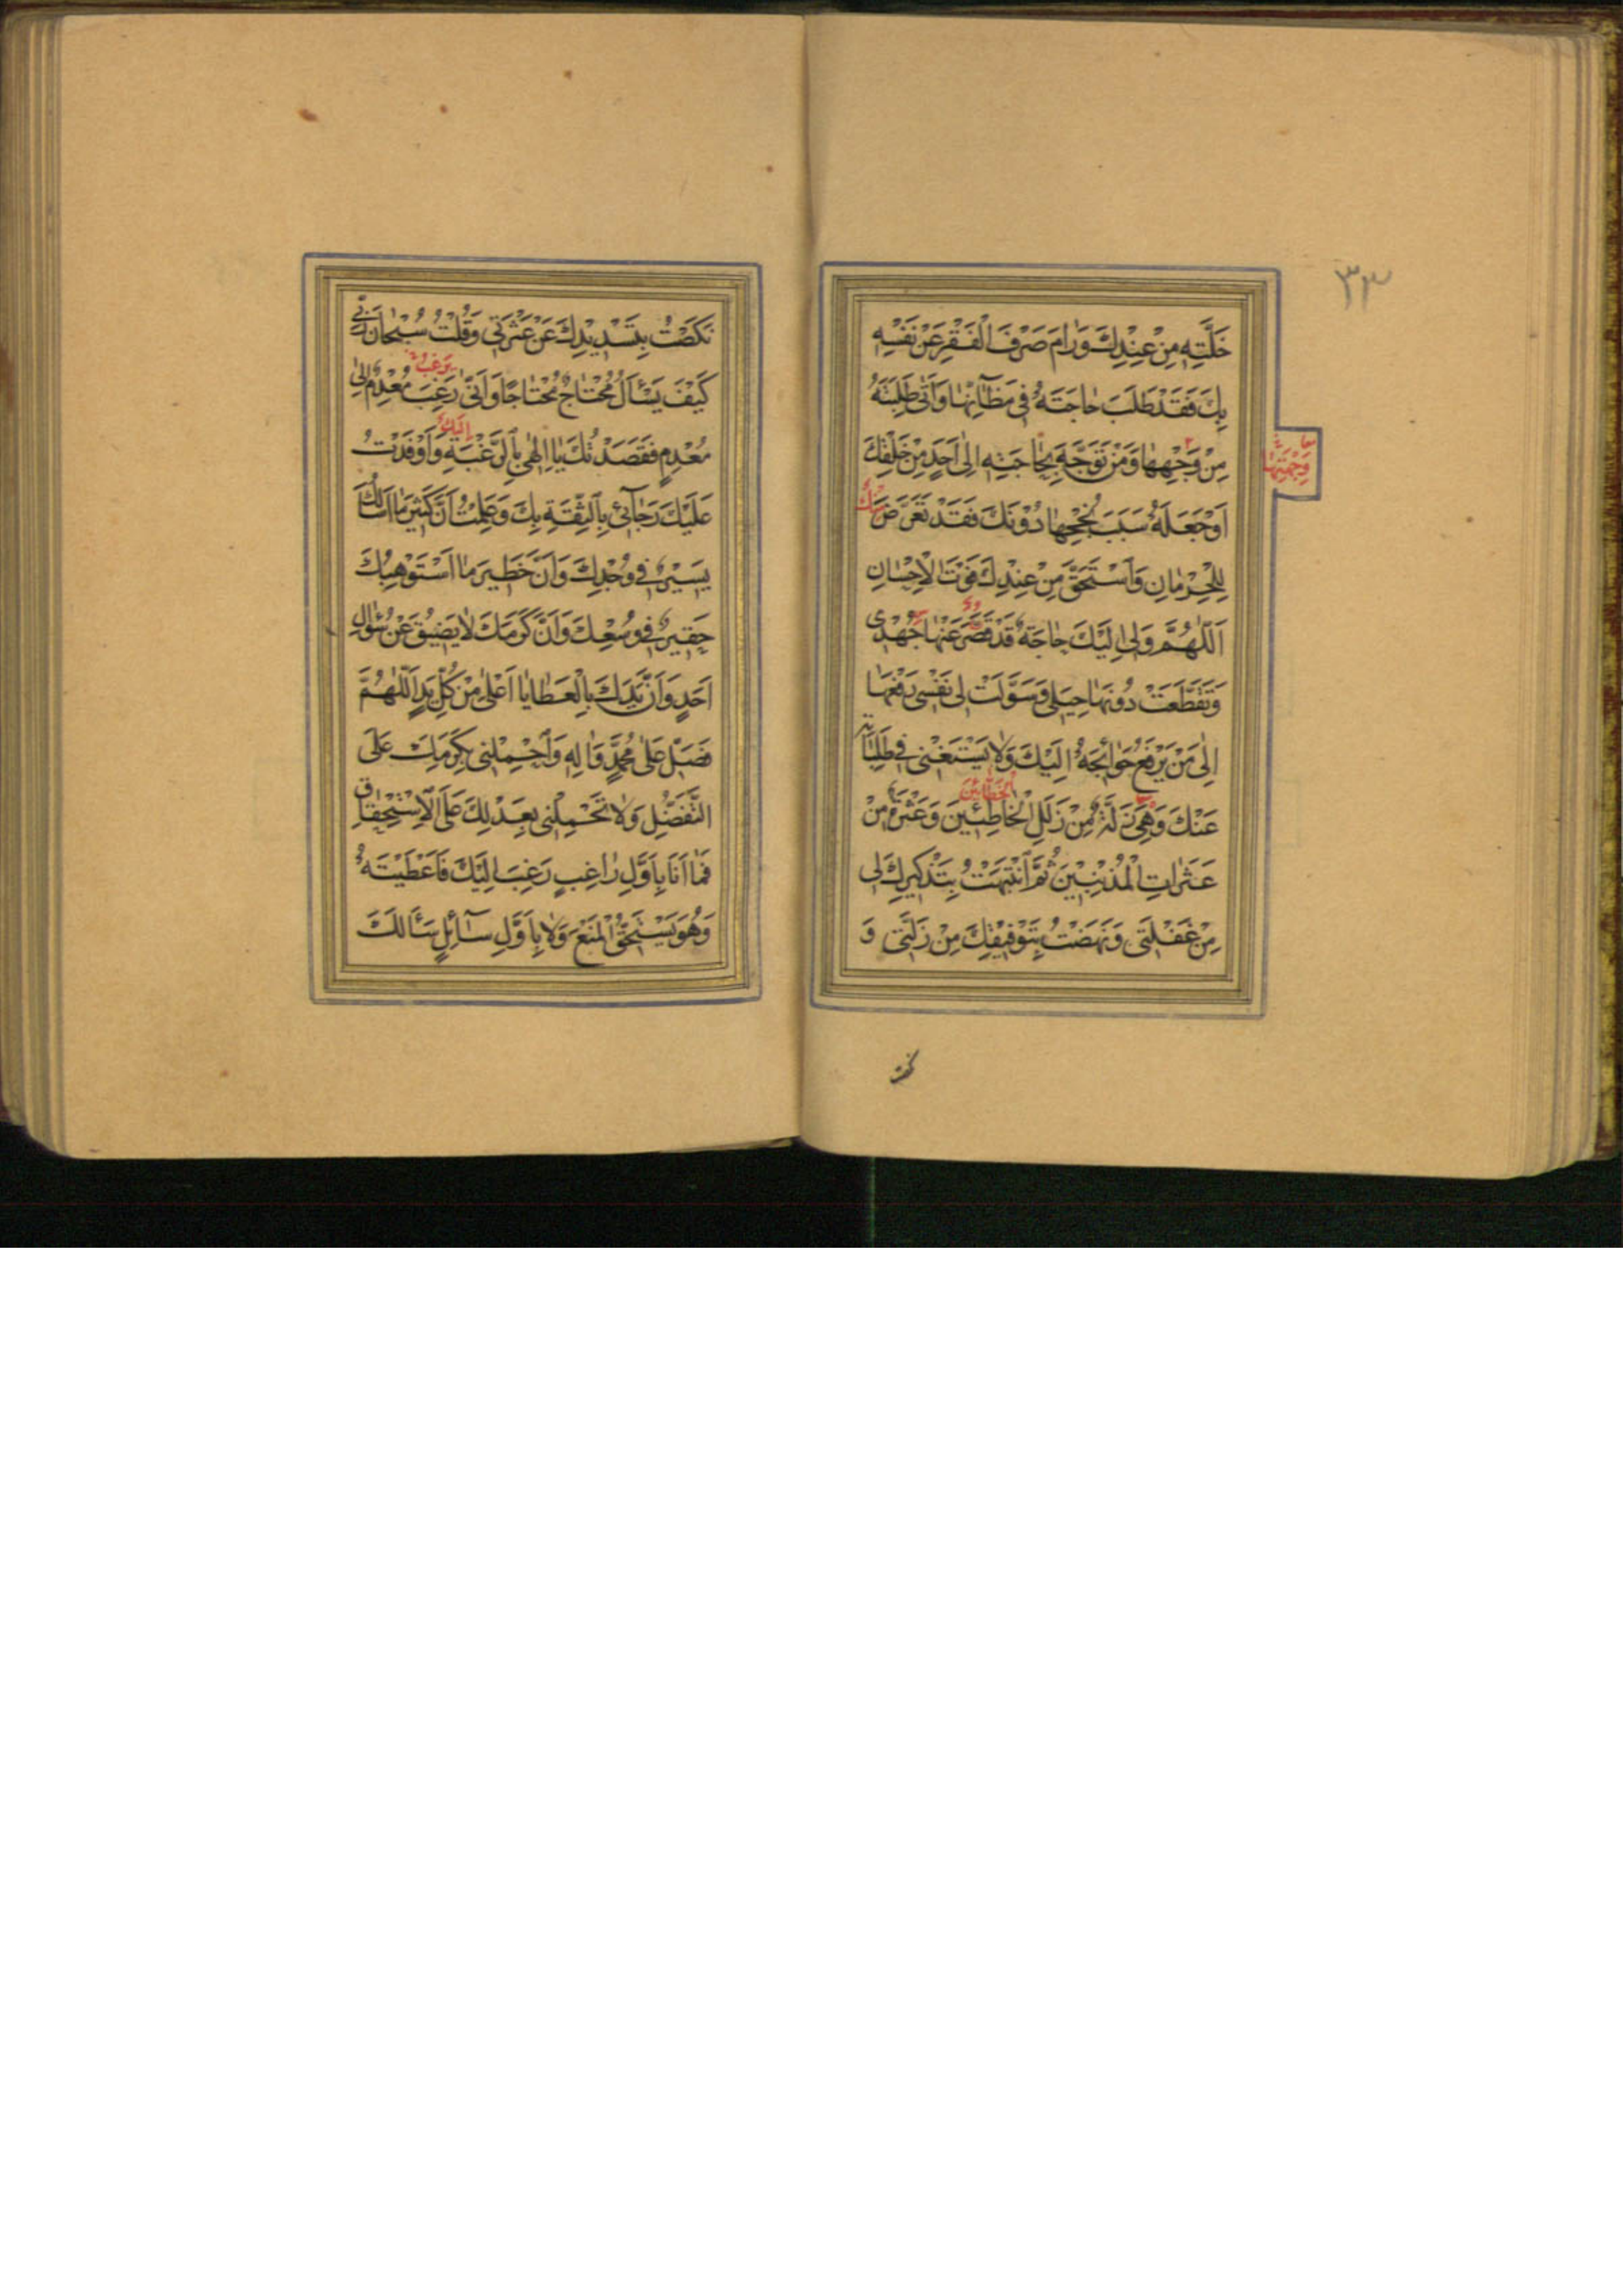 ٣٣
خَلَّتِهِ مِنْ عِنْدِكَ وَرٰامَ صَرْفَ الْفَقْرِ عَنْ نَفْسِهِ
بِكَ فَقَدْ طَلَبَ حٰاجَتَهُ فِي مَظٰآنِّهٰا وَاَتٰى طَلِبَتَهُ
مِنْ وَجْهِهٰا وَمَنْ تَوَجَّهَ بِحٰاجَتِهِ اِلٰى اَحَدٍ مِنْ خَلْقِكَ
وَجْهَتِهٰا
اَوْ جَعَلَهُ سَبَبَ نُجْحِهٰا دُونَكَ فَقَدْ تَعَرَّضَ مِنْكَ
لِلْحِرْمٰانِ وَاسْتَحَقَّ مِنْ عِنْدِكَ فَوْتَ الْاِحْسٰانِ
اَللّٰهُمَّ وَلِى اِلَيْكَ حٰاجَةٌ قَدْ قَصَّرَ عَنْهٰا جُهْدِى
وَتَقَطَّعَتْ دُونَهٰا حِيَلِى وَسَوَّلَتْ لِى نَفْسِى رَفْعَهٰا
اِلٰى مَنْ يَرْفَعُ حَوٰائِجَهُ اِلَيْكَ وَلٰا يَسْتَغْنِى فِي طَلِبٰاتِهِ
الْخَطّٰائِينَ
عَنْكَ وَهِىَ زَلَّةٌ مِنْ زَلَلِ الْخٰاطِئِينَ وَعَثْرَةٌ مِنْ
عَثَرٰاتِ الْمُذْنِبِينَ ثُمَّ انْتَبَهْتُ بِتَذْكِيرِكَ لِى
مِنْ غَفْلَتِى وَنَهَضْتُ بِتَوْفِيقِكَ مِنْ زَلَّتِى وَ
نكصت
نَكَصْتُ بِتَسْدِيدِكَ عَنْ عَثْرَتِى وَقُلْتُ سُبْحٰانَ رَبِّى
يَرْغَبُ
كَيْفَ يَسْأَلُ مُحْتٰاجٌ مُحْتٰاجًا وَاَنّٰى رَغِبَ مُعْدِمٌ اِلٰى
اِلَيْكَ
مُعْدِمٍ فَقَصَدْتُكَ يٰا اِلٰهِى بِالرَّغْبَةِ وَاَوْفَدْتُ
عَلَيْكَ رَجٰآئِى بِالثِّقَةِ بِكَ وَعَلِمْتُ اَنَّ كَثِيرَ مٰا اَسْأَلُكَ
يَسِيرٌ فِي وُجْدِكَ وَاَنَّ خَطِيرَ مٰا اَسْتَوْهِبُكَ
حَقِيرٌ فِي وُسْعِكَ وَاَنَّ كَرَمَكَ لٰا يَضِيقُ عَنْ سُؤٰالِ
اَحَدٍ وَاَنَّ يَدَكَ بِالْعَطٰايٰا اَعْلٰى مِنْ كُلِّ يَدٍ اَللّٰهُمَّ
فَصَلِّ عَلٰى مُحَمَّدٍ وَاٰلِهِ وَاحْمِلْنِى بِكَرَمِكَ عَلَى
التَّفَضُّلِ وَلٰا تَحْمِلْنِى بِعَدْلِكَ عَلَى الْاِسْتِحْقٰاقِ
فَمٰا اَنَا بِاَوَّلِ رٰاغِبٍ رَغِبَ اِلَيْكَ فَاَعْطَيْتَهُ
وَهُوَ يَسْتَحِقُّ الْمَنْعَ وَلٰا بِاَوَّلِ سٰآئِلٍ سَأَلَكَ